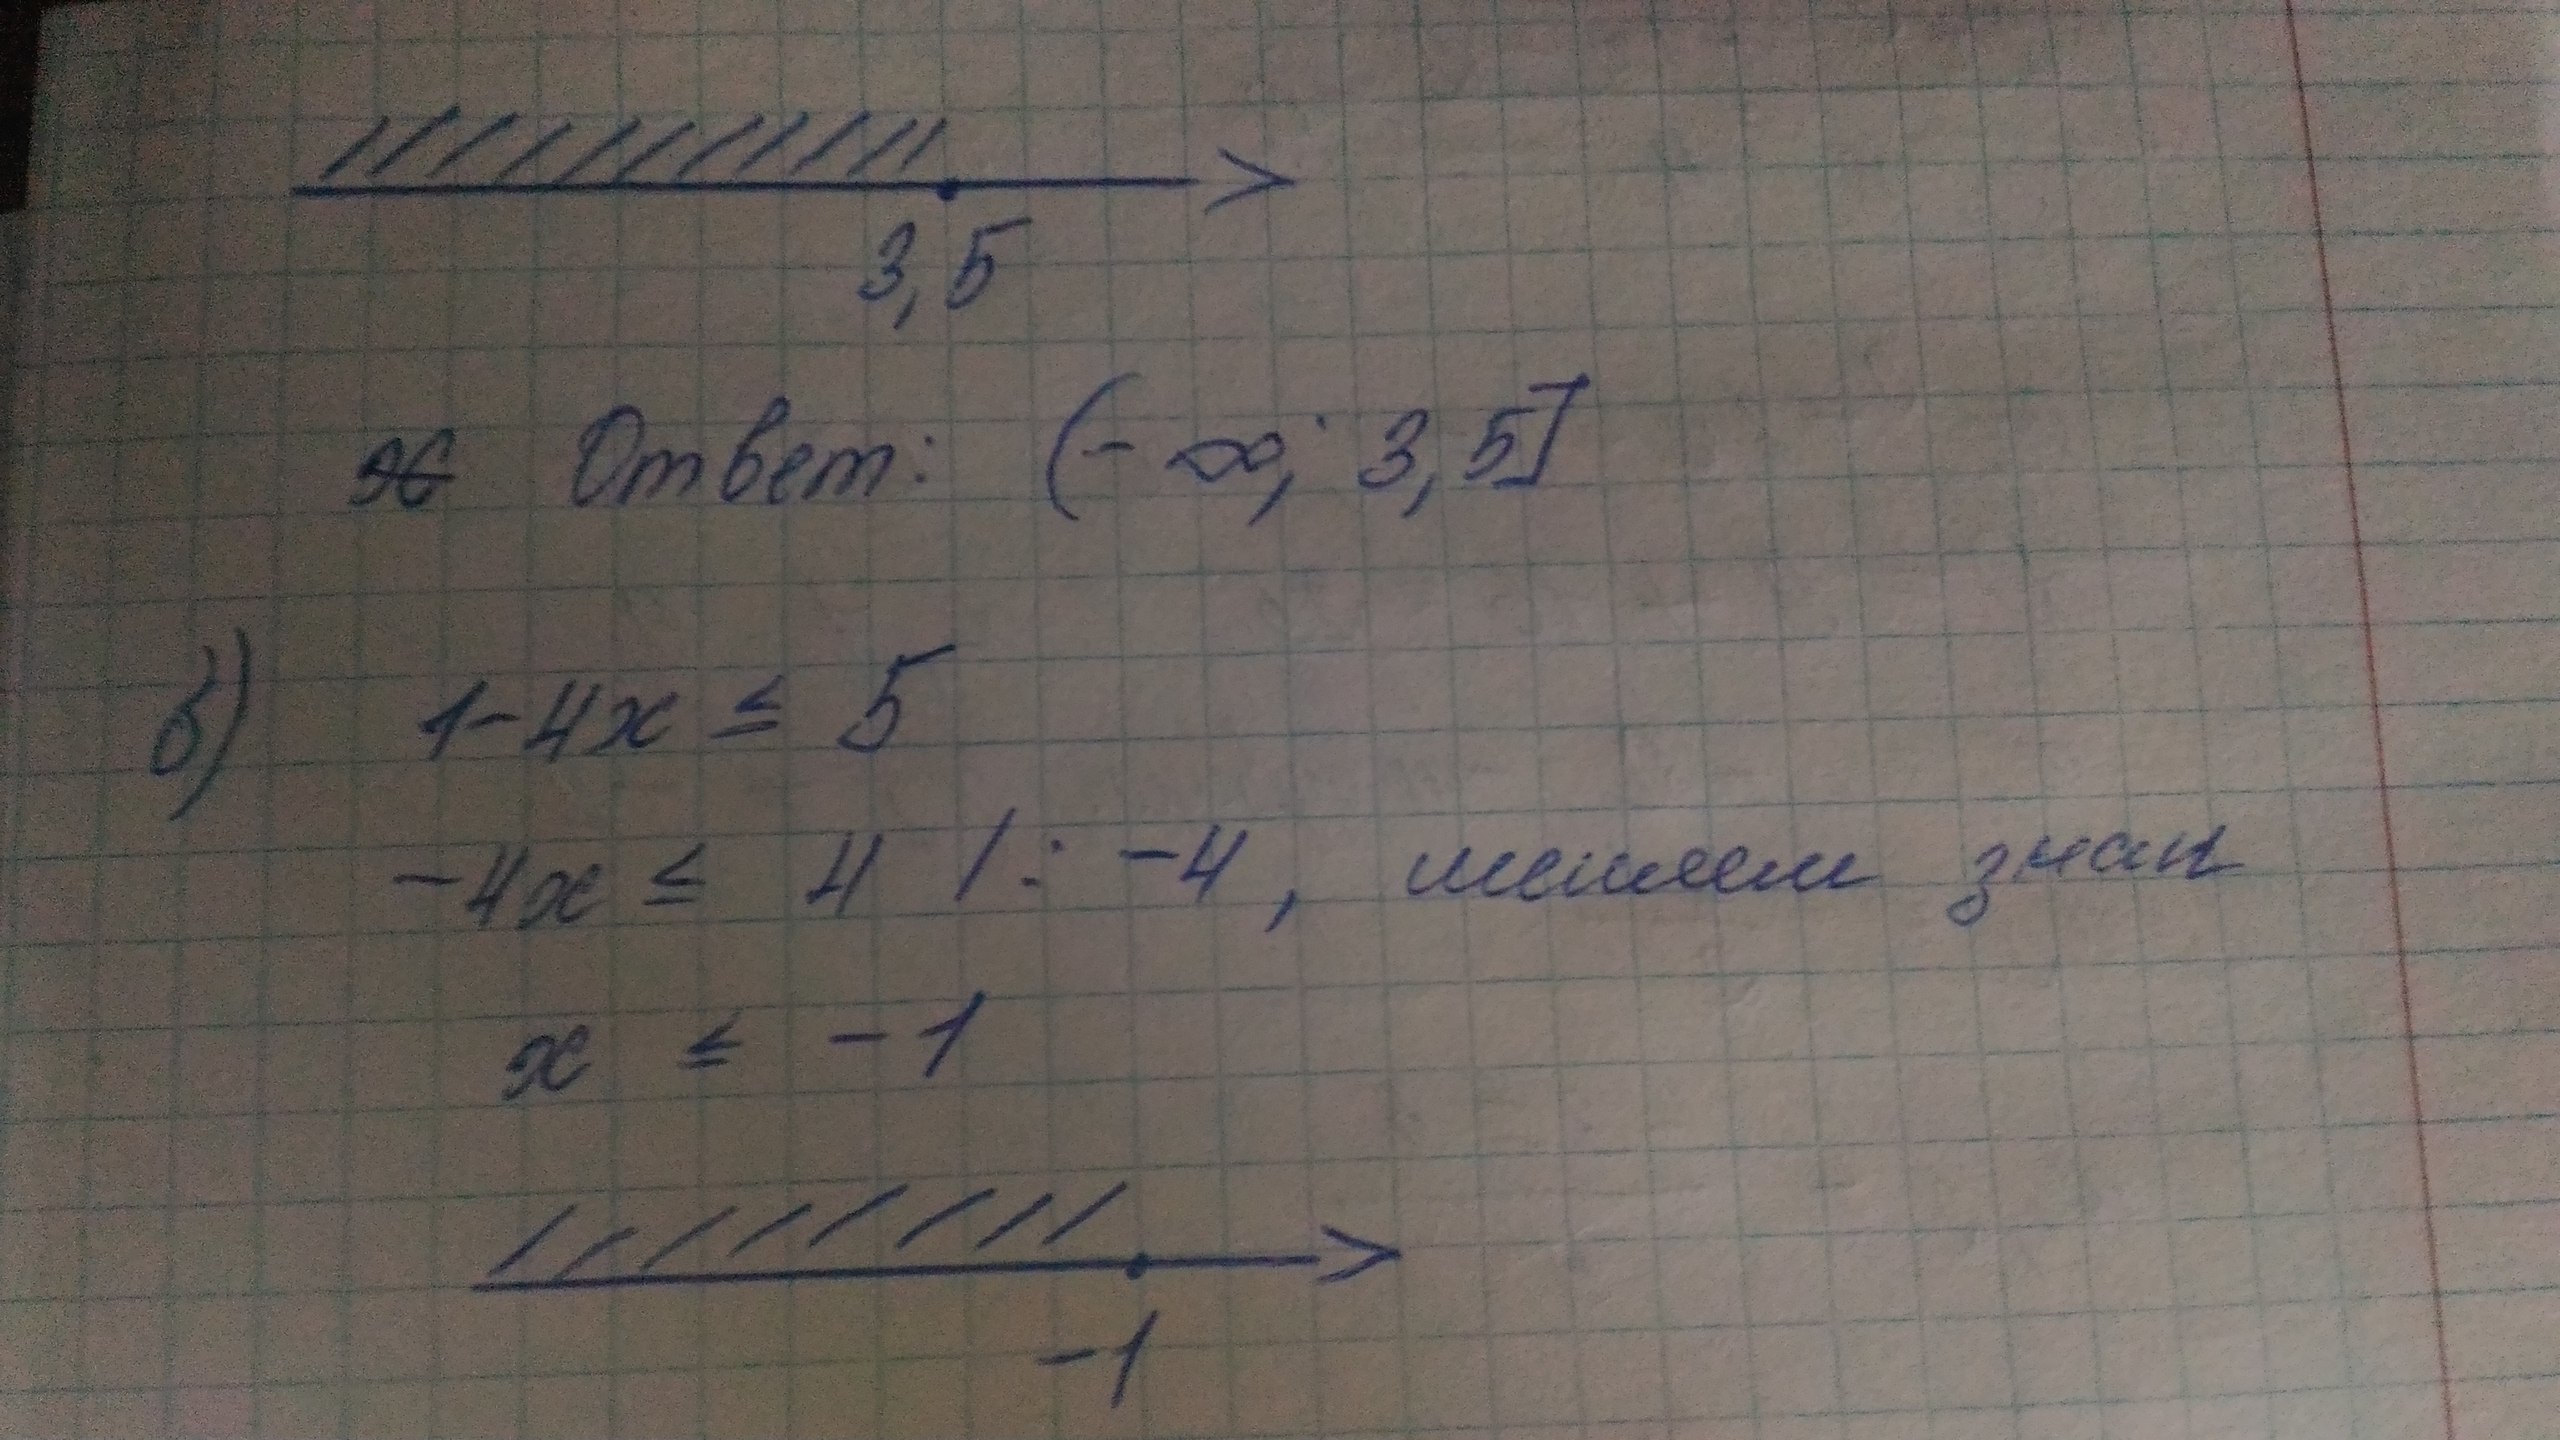 3,5
Ответ: (-∞; 3,5]
в) 1-4x ≤ 5
-4x ≤ 4 /: -4, меняем знак
x ≤ -1
-1